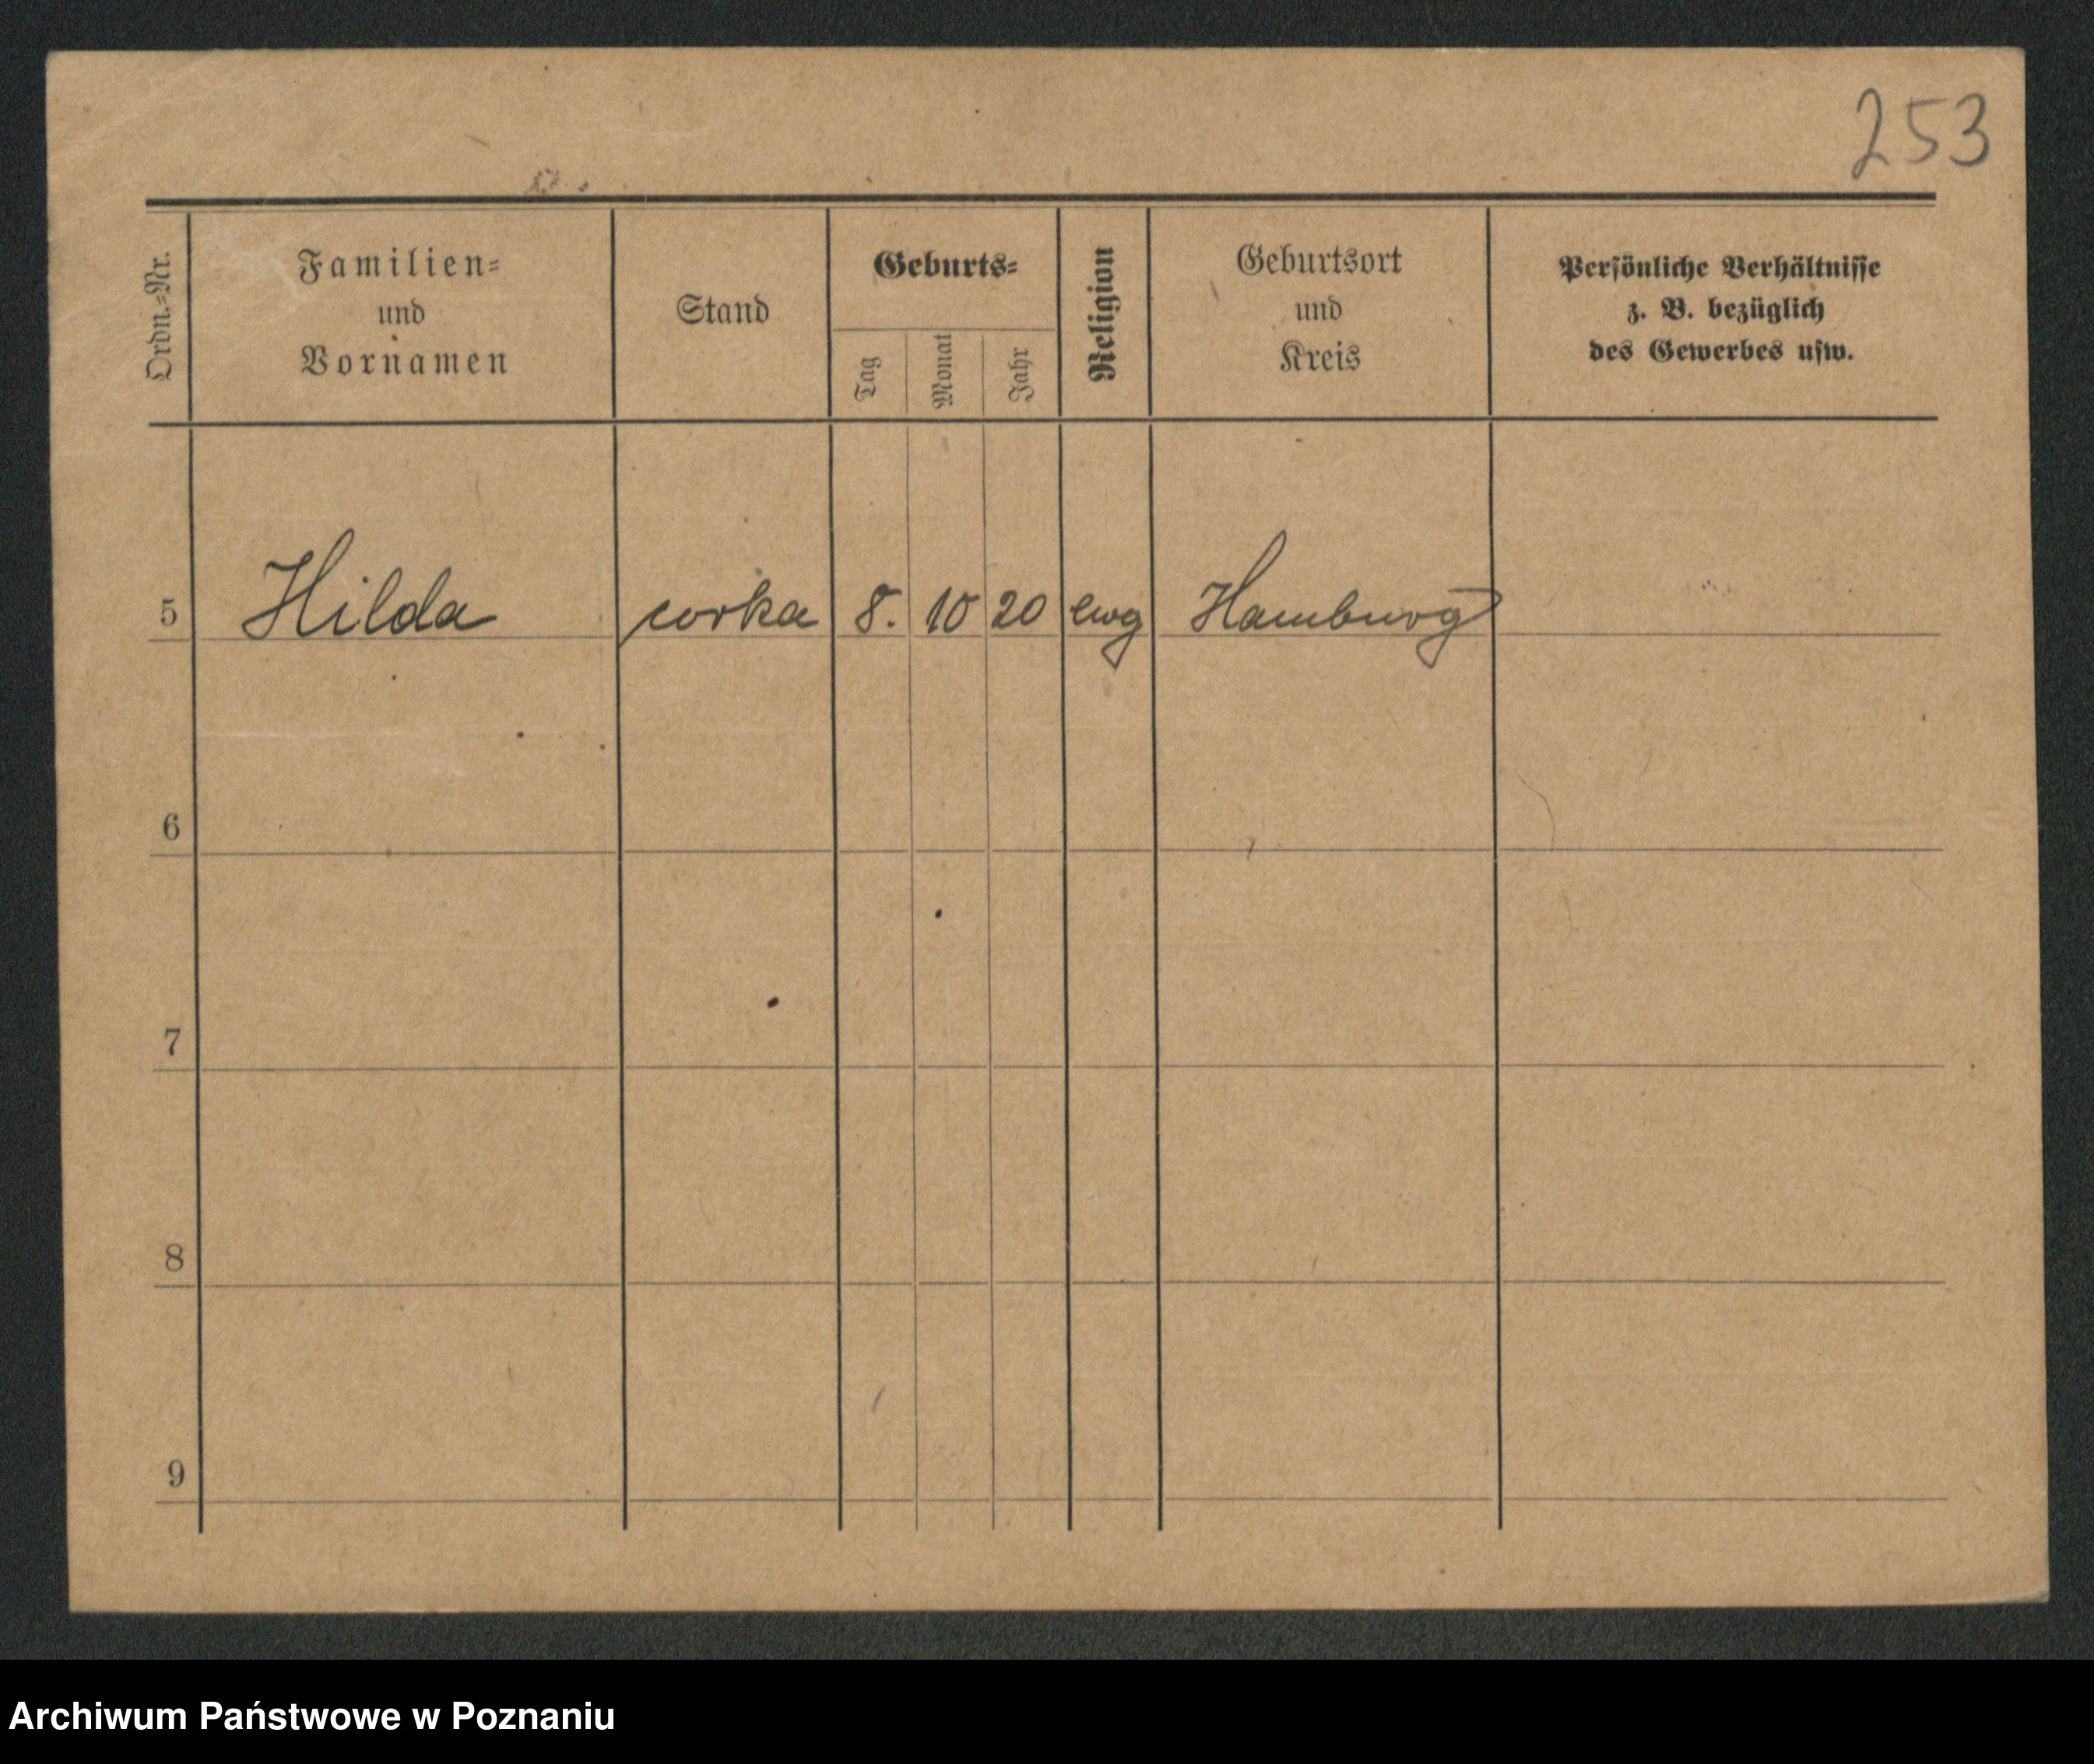 253
Ordn.=Nr.
Familien=
und
Vornamen
Stand
Geburts=
Tag
Monat
Jahr
Religion
Geburtsort
und
Kreis
Persönliche Verhältnisse
z. B. bezüglich
des Gewerbes usw.
5 Hilda corka 8. 10 20 ewg Hamburg
6
7
8
9
Archiwum Państwowe w Poznaniu